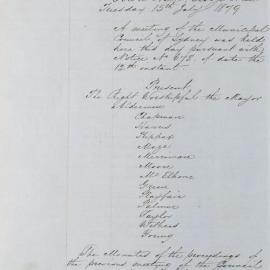 Tuesday 15th July 1879
A meeting of the Municipal
Council of Sydney was held
here this day pursuant with
Notice No 678 of date the
12th instant.
Present
The Right Worshipful the Mayor
Aldermen
Chapman
Harris
Hippax
Maze
Merriman
Moore
McElhone
Green
Playfair
Palmer
Taylor
Withers
Young
The Minutes of the proceedings of
the previous meeting of the Council